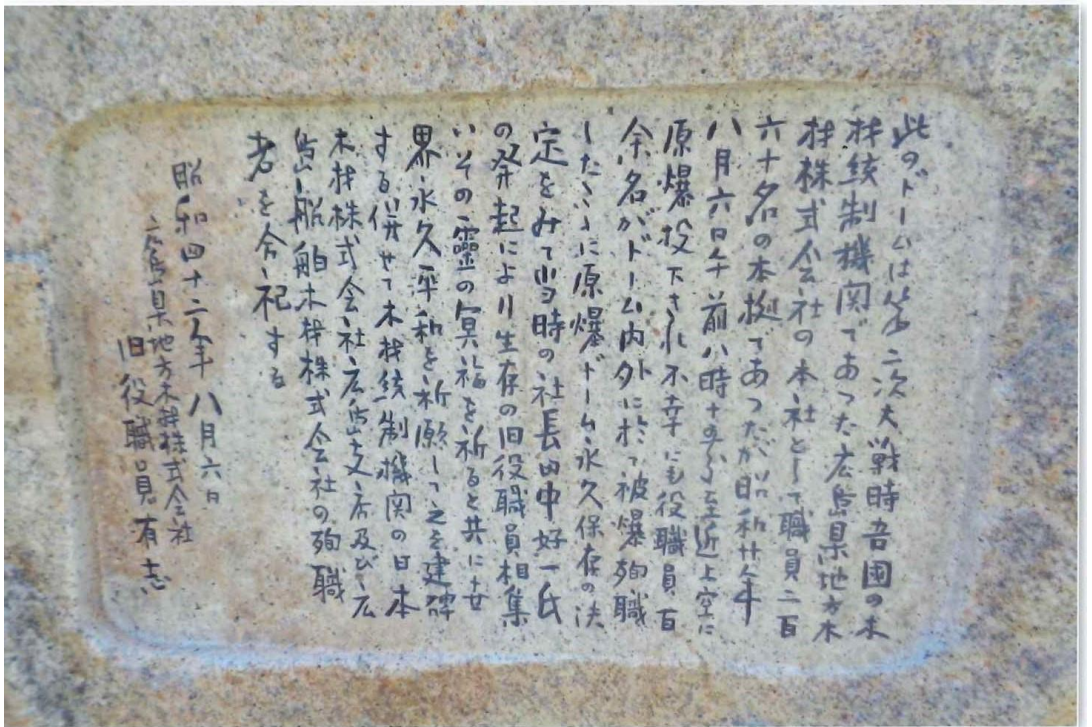 此のドームは第二次大戦時吾国の木
材統制機関であつた広島県地方木
材株式会社の本社として職員二百
六十名の本拠であつたが昭和廿年
八月六日午前八時十五分至近上空に
原爆投下され不幸にも役職員百
余名がドーム内外に於て被爆殉職
したここに原爆ドーム永久保存の決
定をみて当時の社長田中好一氏
の発起により生存の旧役職員相集
いその霊の冥福を祈ると共に世
界永久平和を祈願して之を建碑
する併せて木材統制機関の日本
木材株式会社広島支店及び広
島船舶木材株式会社の殉職
者を合祀する
昭和四十二年八月六日
広島県地方木材株式会社
旧役職員有志